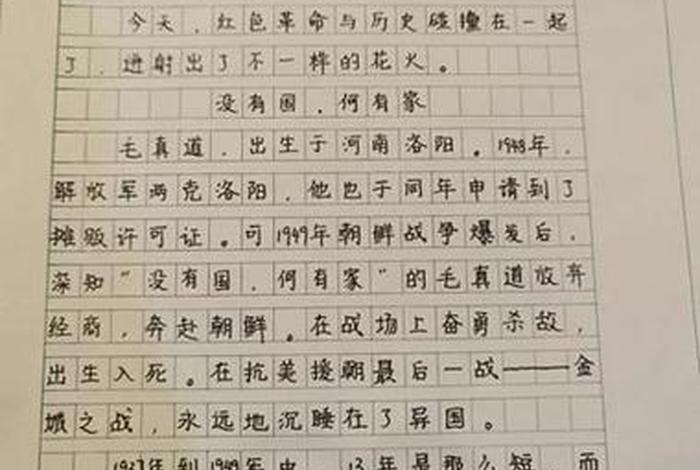 今天，红色革命与历史碰撞在一起
了，迸射出了不一样的花火。
没有国，何有家
毛真道，出生于河南洛阳。1948年，
解放军两克洛阳，他也于同年申请到了
摊贩许可证。可1949年朝鲜战争爆发后，
深知“没有国，何有家”的毛真道放弃
经商，奔赴朝鲜。在战场上奋勇杀敌，
出生入死。在抗美援朝最后一战——金
城之战，永远地沉睡在了异国。
1937年到1949年中，13年是那么短，而